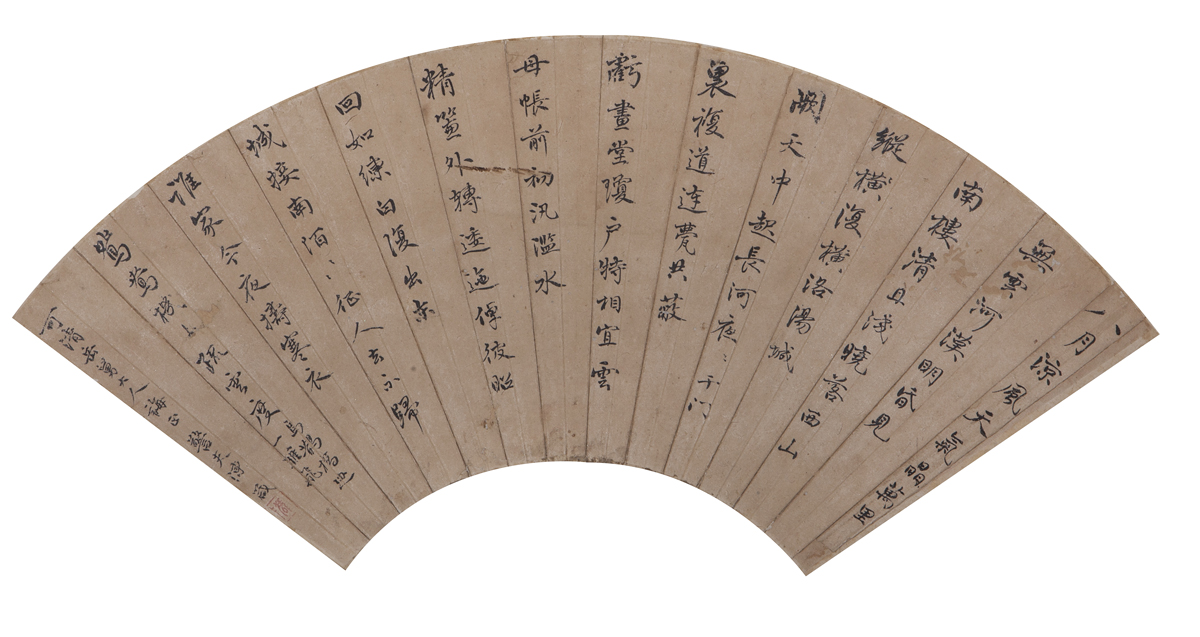 八月涼風天氣晶萬里
無雲河漢明昏見
南樓清且淺曉落西山
縱橫復橫洛湯城
闕天中起長河夜〻千門
裏複道連甍共蔽
虧畫堂瓊戶特相宜雲
母帳前初汎濫水
精簾外轉逶迤倬彼昭
回如練白復出東
城接南陌〻征人去不歸
誰家今夜擣寒衣
鴛鴦機上疏螢度烏鵲橋邊
一雁飛
可清岳舅大人誨正